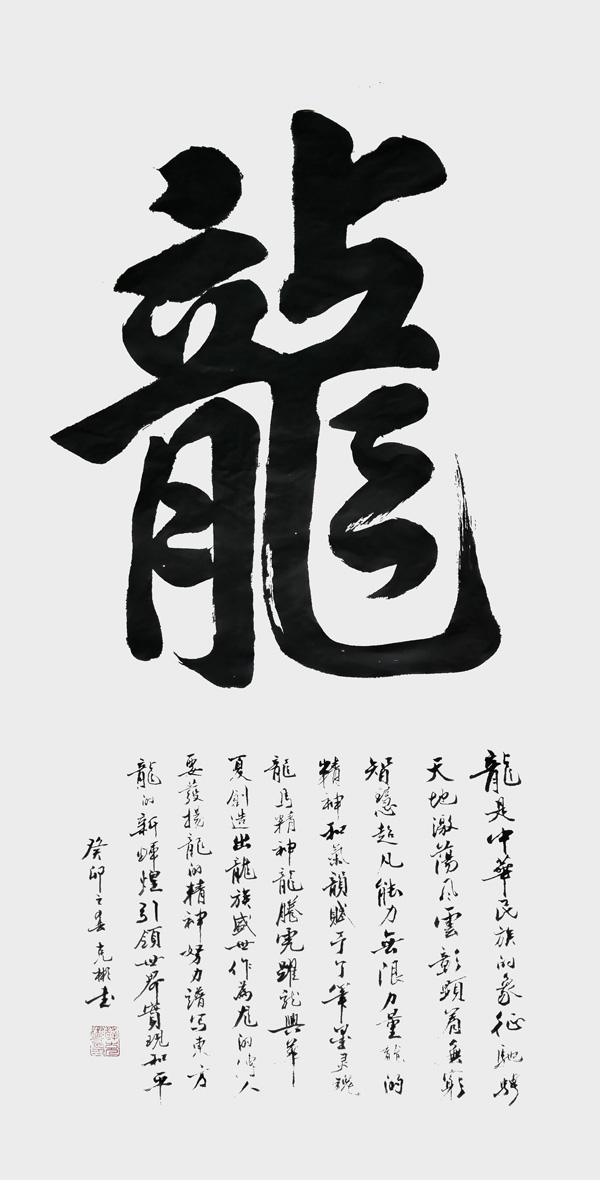 龍
龍是中華民族的象征馳騁
天地激蕩风雲彰顯着無窮
智慧超凡能力無限力量龍的
精神和氣韻賦予了筆墨灵魂
龍馬精神龍騰虎躍龍興華
夏創造出龍族盛世作為龙的傳人
要發揚龍的精神努力譜写東方
龍的新輝煌引領世界實現和平
癸卯之春克彬书